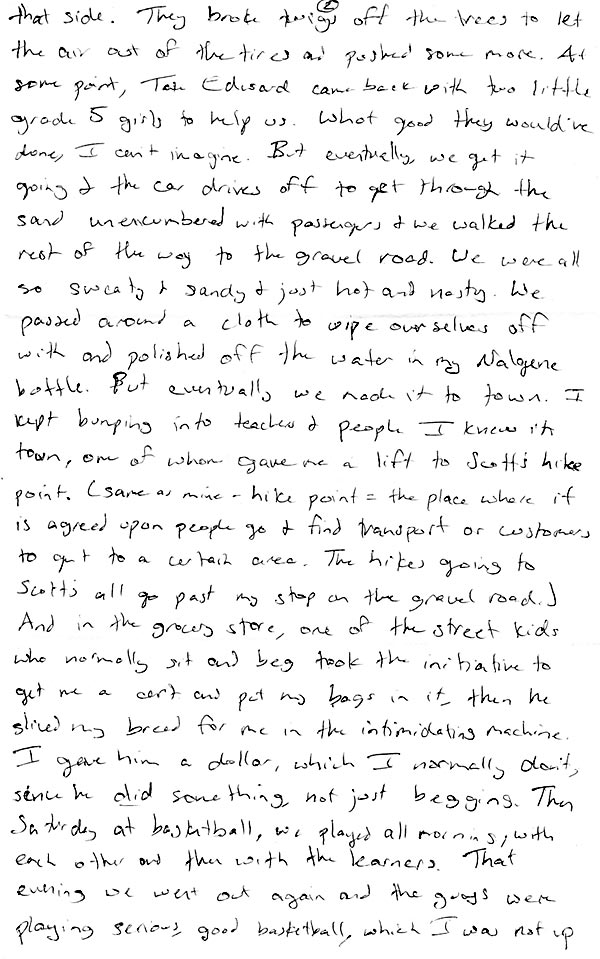 that side. They broke twigs off the trees to let
the air out of the tires and pushed some more. At
some point, Tate Edward came back with two little
grade 5 girls to help us. What good they would've
done, I can't imagine. But eventually, we get it
going & the car drives off to get through the
sand unencumbered with passengers & we walked the
rest of the way to the gravel road. We were all
so sweaty & sandy & just hot and nasty. We
passed around a cloth to wipe ourselves off
with and polished off the water in my Nalgene
bottle. But eventually we made it to town. I
kept bumping into teachers & people I knew in
town, one of whom gave me a lift to Scott's hike
point. (same as mine - hike point = the place where it
is agreed upon people go & find transport or customers
to get to a certain area. The hikes going to
Scott's all go past my stop on the gravel road.)
And in the grocery store, one of the street kids
who normally sit and beg took the initiative to
get me a cart and put my bags in it, then he
sliced my bread for me in the intimidating machine.
I gave him a dollar, which I normally don't,
since he did something, not just begging. Then
Saturday at basketball, we played all morning, with
each other and then with the learners. That
evening we went out again and the guys were
playing serious, good basketball, which I was not up